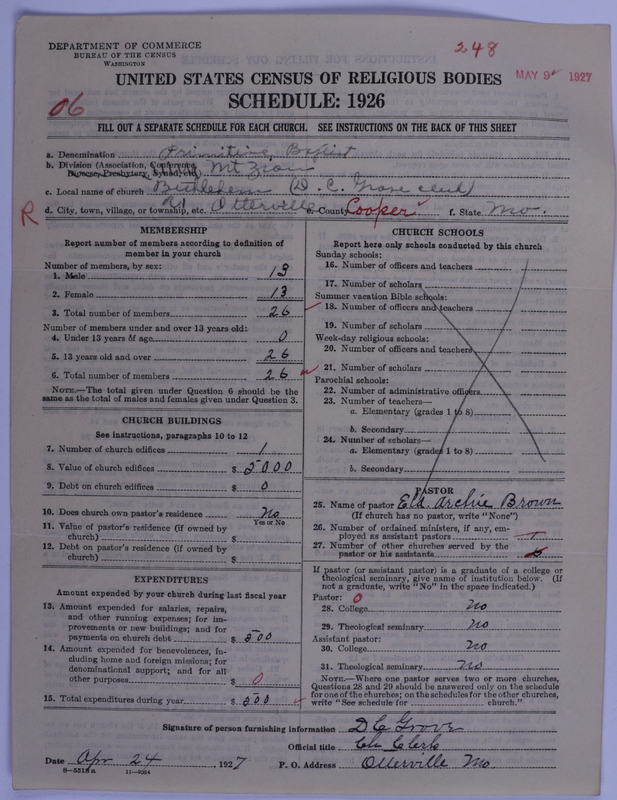 DEPARTMENT OF COMMERCE
BUREAU OF THE CENSUS
WASHINGTON
248
MAY 9 1927
UNITED STATES CENSUS OF RELIGIOUS BODIES
SCHEDULE: 1926
06
FILL OUT A SEPARATE SCHEDULE FOR EACH CHURCH. SEE INSTRUCTIONS ON THE BACK OF THIS SHEET
a. Denomination Primitive Baptist
b. Division (Association, Conference, Diocese, Presbytery, Synod, etc.) Mt Zion
c. Local name of church Bethlehem (D. C. Grove clerk)
R d. City, town, village, or township, etc. Otterville e. County Cooper f. State Mo.
MEMBERSHIP
Report number of members according to definition of
member in your church
Number of members, by sex:
1. Male 13
2. Female 13
3. Total number of members 26
Number of members under and over 13 years old:
4. Under 13 years of age 0
5. 13 years old and over 26
6. Total number of members 26
NOTE.—The total given under Question 6 should be
same as the total of males and females given under Question 3.
CHURCH BUILDINGS
See instructions, paragraphs 10 to 12
7. Number of church edifices 1
8. Value of church edifices $ 2000
9. Debt on church edifices $ 0
10. Does church own pastor's residence No
Yes or No
11. Value of pastor's residence (if owned by
church) $
12. Debt on pastor's residence (if owned by
church) $
EXPENDITURES
Amount expended by your church during last fiscal year
13. Amount expended for salaries, repairs,
and other running expenses; for im-
provements or new buildings; and for
payments on church debt $ 200
14. Amount expended for benevolences, in-
cluding home and foreign missions; for
denominational support; and for all
other purposes $ 0
15. Total expenditures during year $ 200
CHURCH SCHOOLS
Report here only schools conducted by this church
Sunday schools:
16. Number of officers and teachers
17. Number of scholars
Summer vacation Bible schools:
18. Number of officers and teachers
19. Number of scholars
Week-day religious schools:
20. Number of officers and teachers
21. Number of scholars
Parochial schools:
22. Number of administrative officers
23. Number of teachers—
a. Elementary (grades 1 to 8)
b. Secondary
24. Number of scholars—
a. Elementary (grades 1 to 8)
b. Secondary
PASTOR
25. Name of pastor Eld. Archie Brown
(If church has no pastor, write "None")
26. Number of ordained ministers, if any, em-
ployed as assistant pastors
27. Number of other churches served by the
pastor or his assistants
If pastor (or assistant pastor) is a graduate of a college or
theological seminary, give name of institution below. (If
not a graduate, write "No" in the space indicated.)
Pastor: 0
28. College No
29. Theological seminary No
Assistant pastor:
30. College No
31. Theological seminary No
NOTE.—Where one pastor serves two or more churches,
Questions 28 and 29 should be answered only on the schedule
for one of the churches; on the schedules for the other churches,
write "See schedule for church."
Signature of person furnishing information D C Grove
Official title Ch Clerk
Date Apr 24, 1927 P. O. Address Otterville Mo.
8-5518a 11-9204